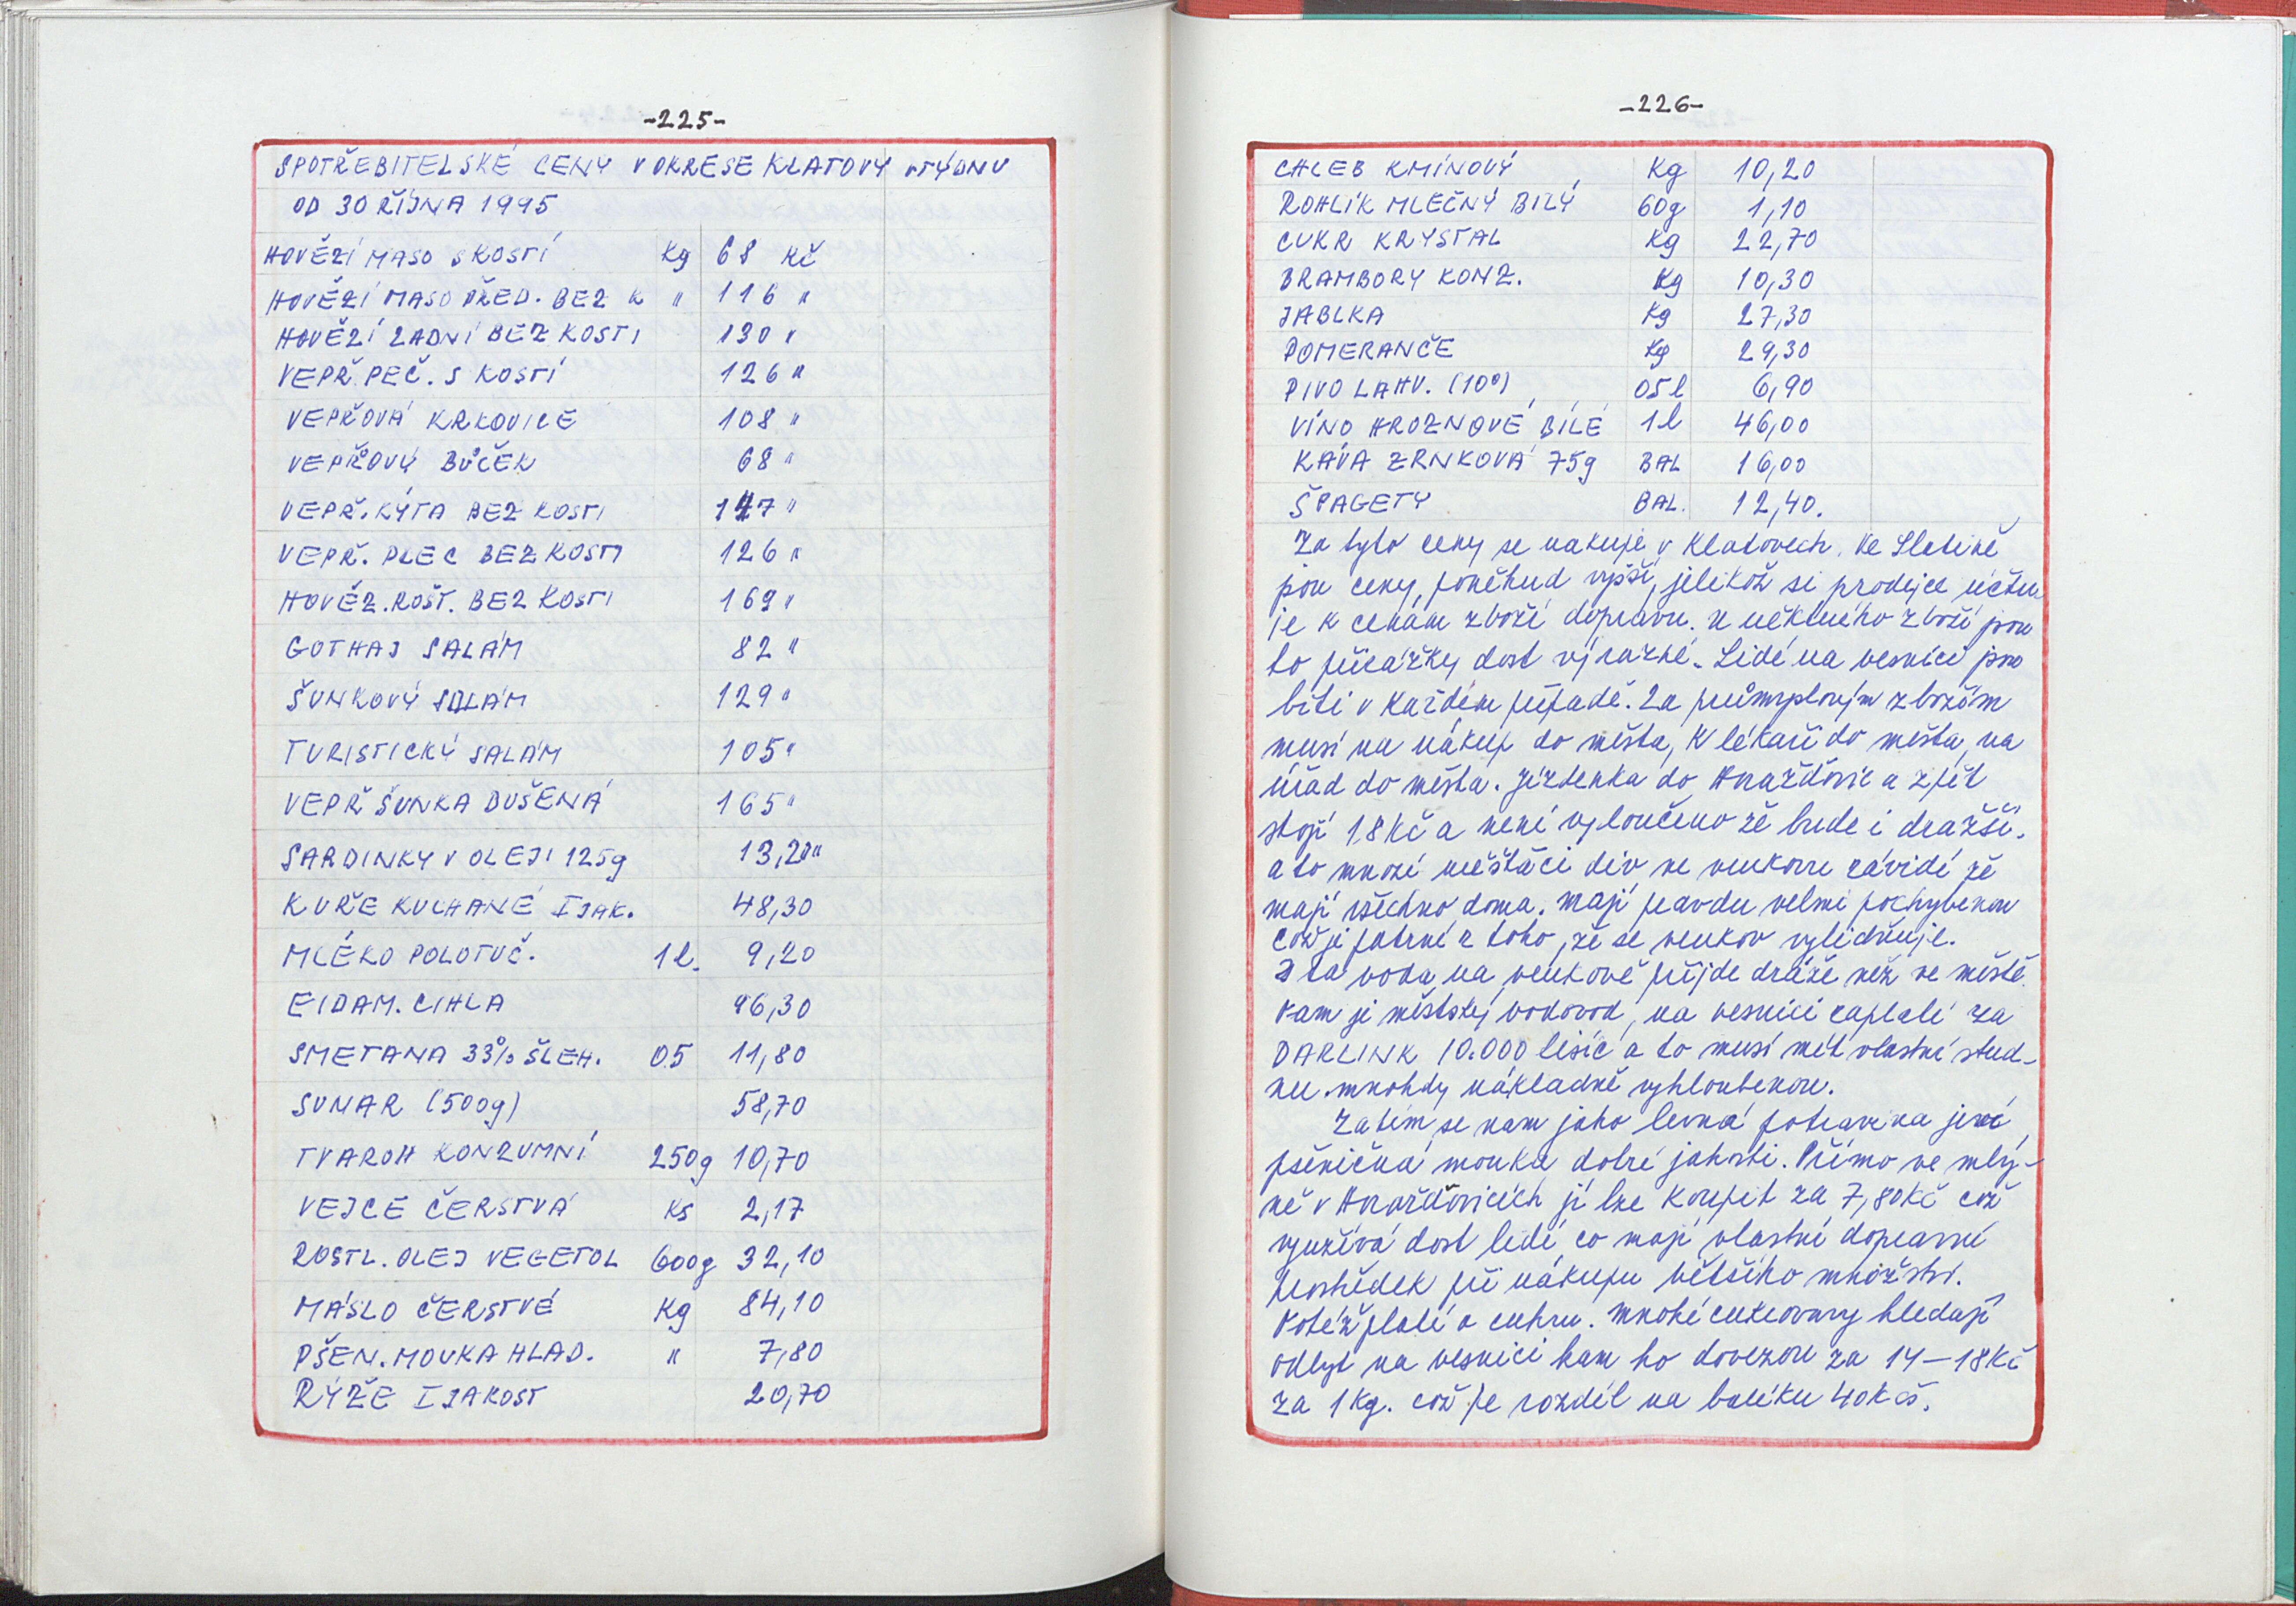 -225-
SPOTŘEBITELSKÉ CENY V OKRESE KLATOVY V TÝDNU
OD 30 ŘÍJNA 1995
HOVĚZÍ MASO S KOSTÍ Kg 68 Kč
HOVĚZÍ MASO PŘED. BEZ K " 116 "
HOVĚZÍ ZADNÍ BEZ KOSTI 130 "
VEPŘ. PEČ. S KOSTÍ 126 "
VEPŘOVÁ KRKOVICE 108 "
VEPŘOVÝ BŮČEK 68 "
VEPŘ. KÝTA BEZ KOSTI 147 "
VEPŘ. PLEC BEZ KOSTI 126 "
HOVĚZ. ROŠT. BEZ KOSTI 169 "
GOTHAJ SALÁM 82 "
ŠUNKOVÝ SALÁM 129 "
TURISTICKÝ SALÁM 105 "
VEPŘ ŠUNKA DUŠENÁ 165 "
SARDINKY V OLEJI 125g 13,20 "
KUŘE KUCHANÉ I JAK. 48,30
MLÉKO POLOTUČ. 1 l. 9,20
EIDAM. CIHLA 96,30
SMETANA 33% ŠLEH. 0.5 11,80
SUNAR (500g) 58,70
TVAROH KONZUMNÍ 250g 10,70
VEJCE ČERSTVÁ Ks 2,17
ROSTL. OLEJ VEGETOL 600g 32,10
MÁSLO ČERSTVÉ Kg 84,10
PŠEN. MOUKA HLAD. " 7,80
RÝŽE I JAKOST 20,70
-226-
CHLEB KMÍNOVÝ Kg 10,20
ROHLÍK MLEČNÝ BILÝ 60g 1,10
CUKR KRYSTAL Kg 22,70
BRAMBORY KONZ. Kg 10,30
JABLKA Kg 27,30
POMERANČE Kg 29,30
PIVO LAHV. (10°) 05 l 6,90
VÍNO HROZNOVÉ BÍLÉ 1 l 46,00
KÁVA ZRNKOVÁ 75g BAL 16,00
ŠPAGETY BAL. 12,40.
Za tyto ceny se nakupuje v Klatovech. Ve Slatině
jsou ceny, poněkud vyšší, jelikož si prodejce účtu-
je k cenám zboží dopravu. U některého zboží jsou
to přirážky dost výrazné. Lidé na vesnici jsou
biti v každém případě. Za průmyslovým zbožím
musí na nákup do města, K lékaři do města, na
úřad do města. Jízdenka do Horažďovic a zpět
stojí 18 Kč a není vyloučeno že bude i dražší.
a to mnozí měšťáci div ne venkovu závidí že
mají všechno doma. Mají pravdu velmi pochybenou
což je patrné z toho, že se venkov vylidňuje.
I ta voda na venkově přijde dráže než ve městě.
Tam je městský vodovod, na vesnici zaplatí za
DARLINK 10.000 tisíc a to musí mít vlastní stud-
nu mnohdy nákladně vyhloubenou.
Zatím se nám jako levná potravina jeví
pšeničná mouka dobré jakosti. Přímo ve mlý-
ně v Horažďovicích jí lze koupit za 7,80 Kč což
využívá dost lidí co mají vlastní dopravní
prostředek při nákupu většího množství.
Totéž platí o cukru. Mnohé cukrovary hledají
odbyt na vesnici kam ho dovezou za 14 – 18 Kč
za 1 Kg. což je rozdíl na balíku 40 Kčs.